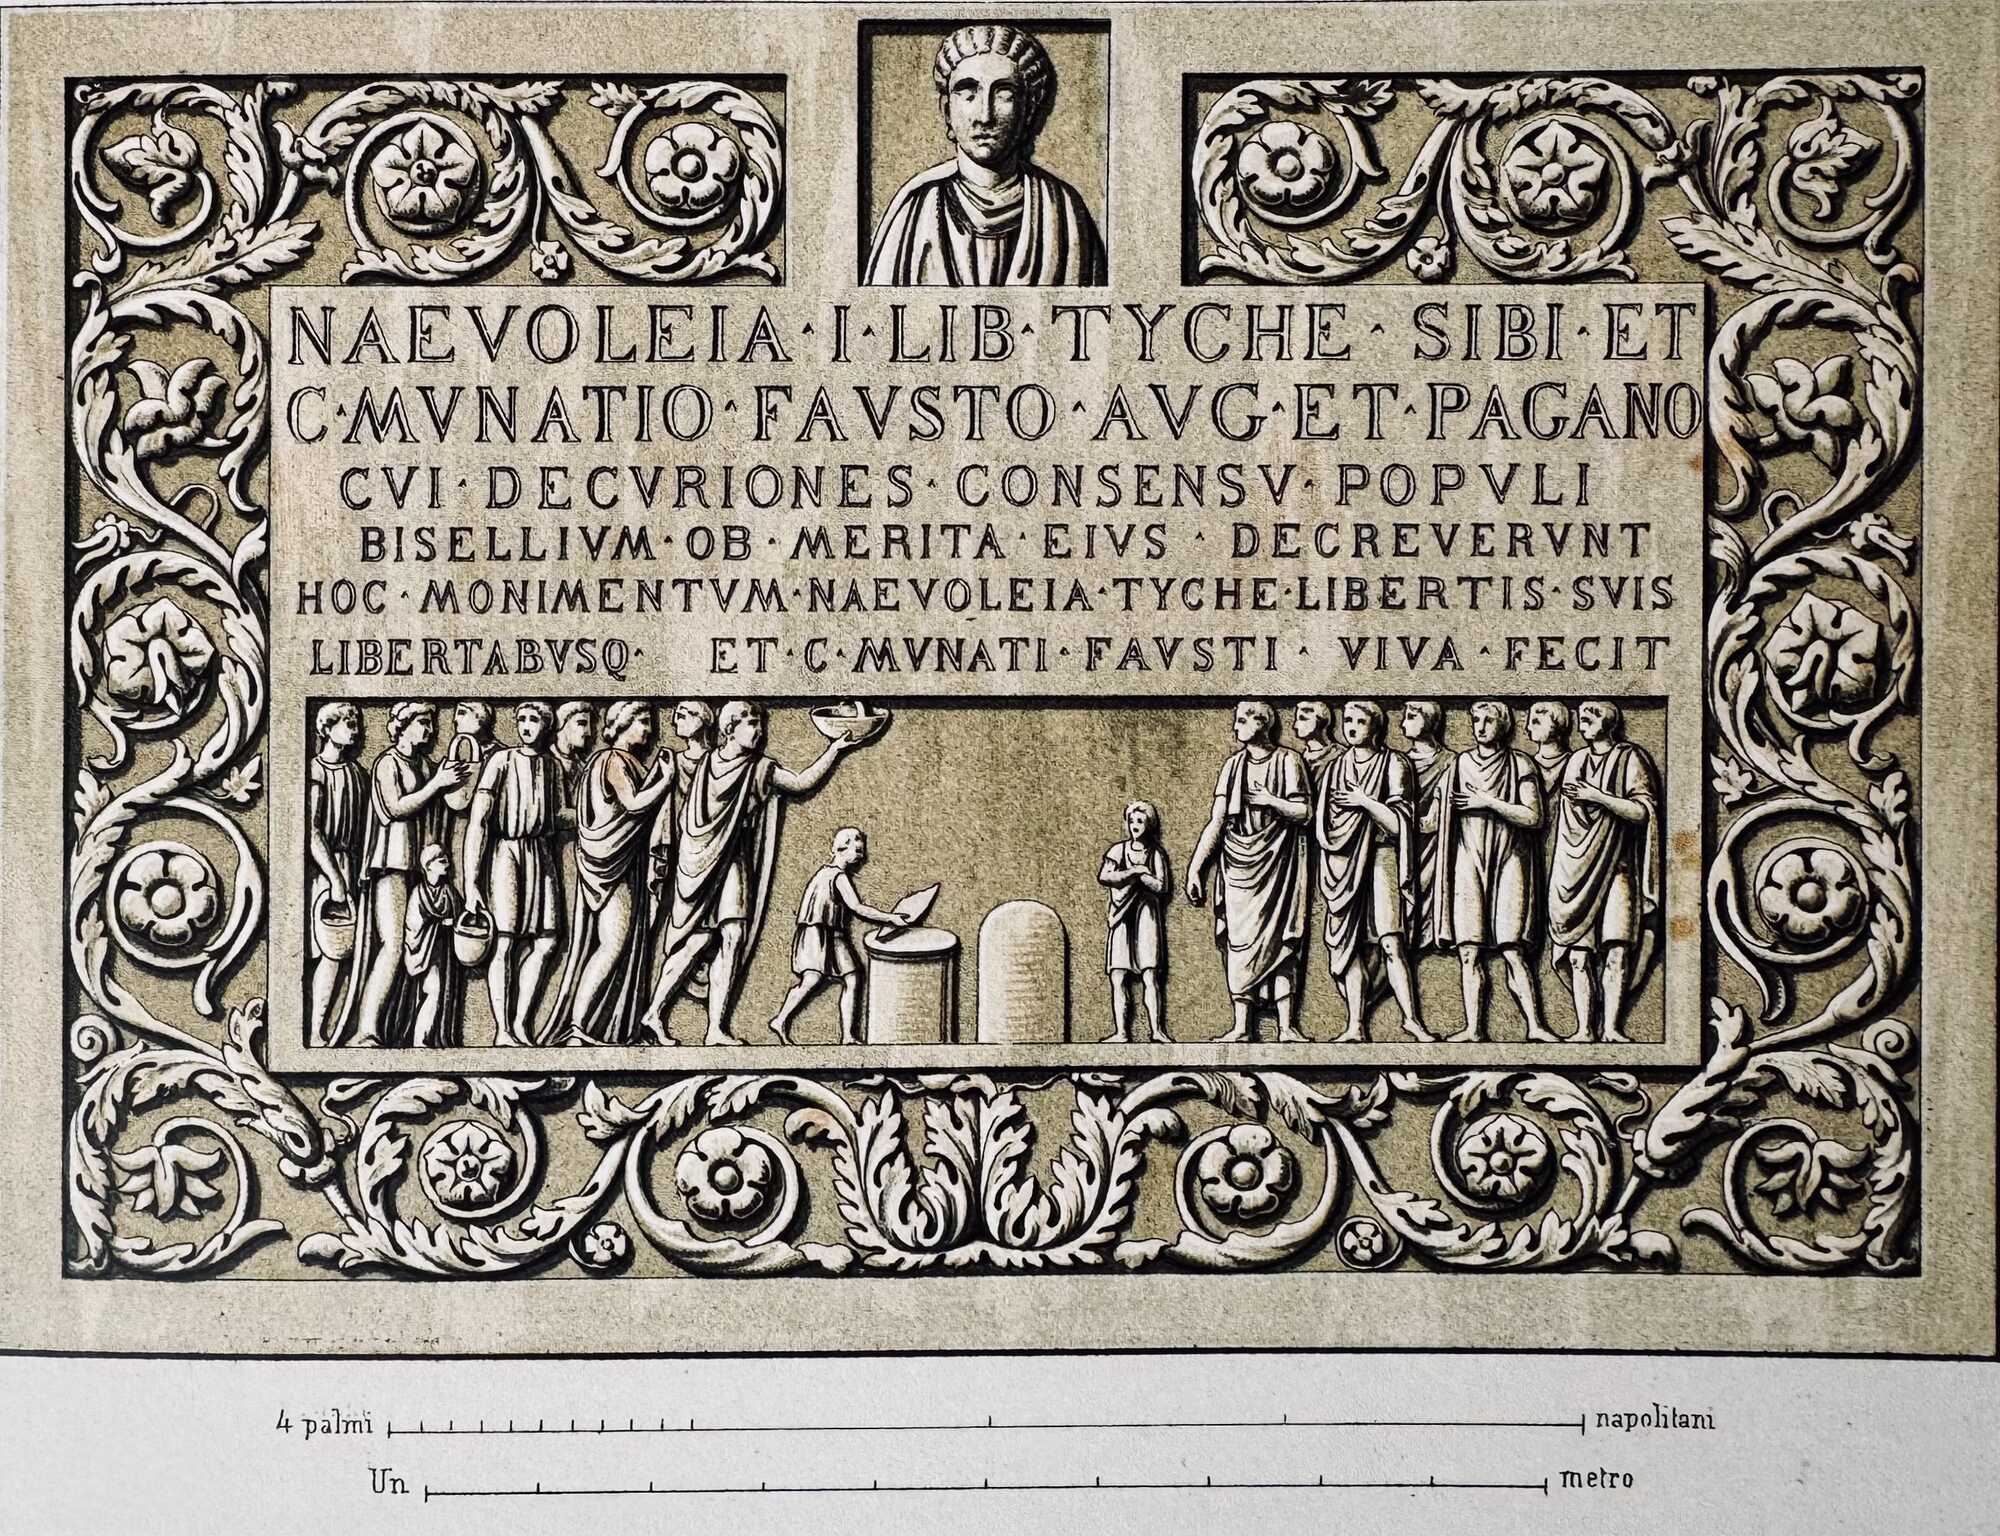 NAEVOLEIA · I · LIB · TYCHE · SIBI · ET
C · MVNATIO · FAVSTO · AVG · ET · PAGANO
CVI · DECVRIONES · CONSENSV · POPVLI
BISELLIVM · OB · MERITA · EIVS · DECREVERVNT
HOC · MONIMENTVM · NAEVOLEIA · TYCHE · LIBERTIS · SVIS
LIBERTABVSQ · ET · C · MVNATI · FAVSTI · VIVA · FECIT
4 palmi napolitani
Un metro